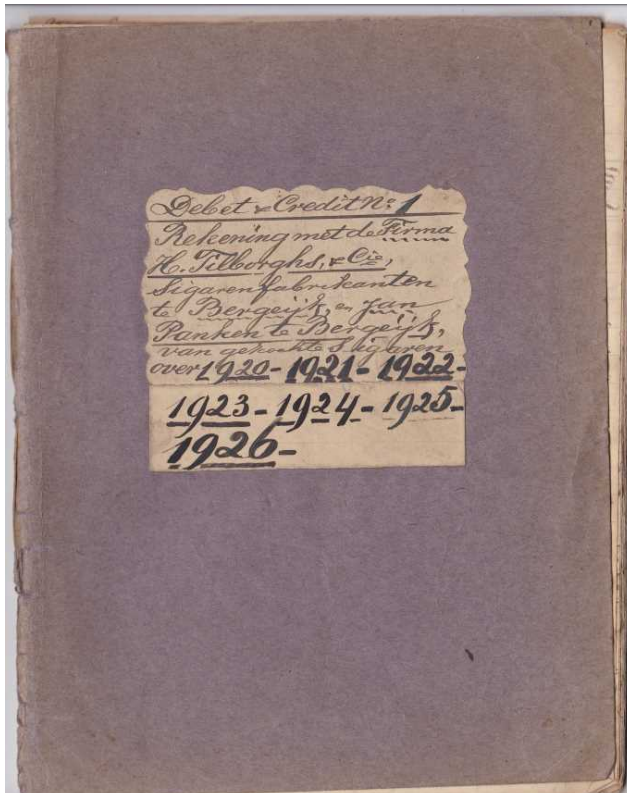 Debet & Credit No: 1
Rekening met de Firma
H. Tilborghs, & Cie,
Sigarenfabrikanten
te Bergeijk, en Jan
Panken te Bergeijk,
van gekochte Sigaren
over 1920- 1921- 1922-
1923- 1924- 1925-
1926-